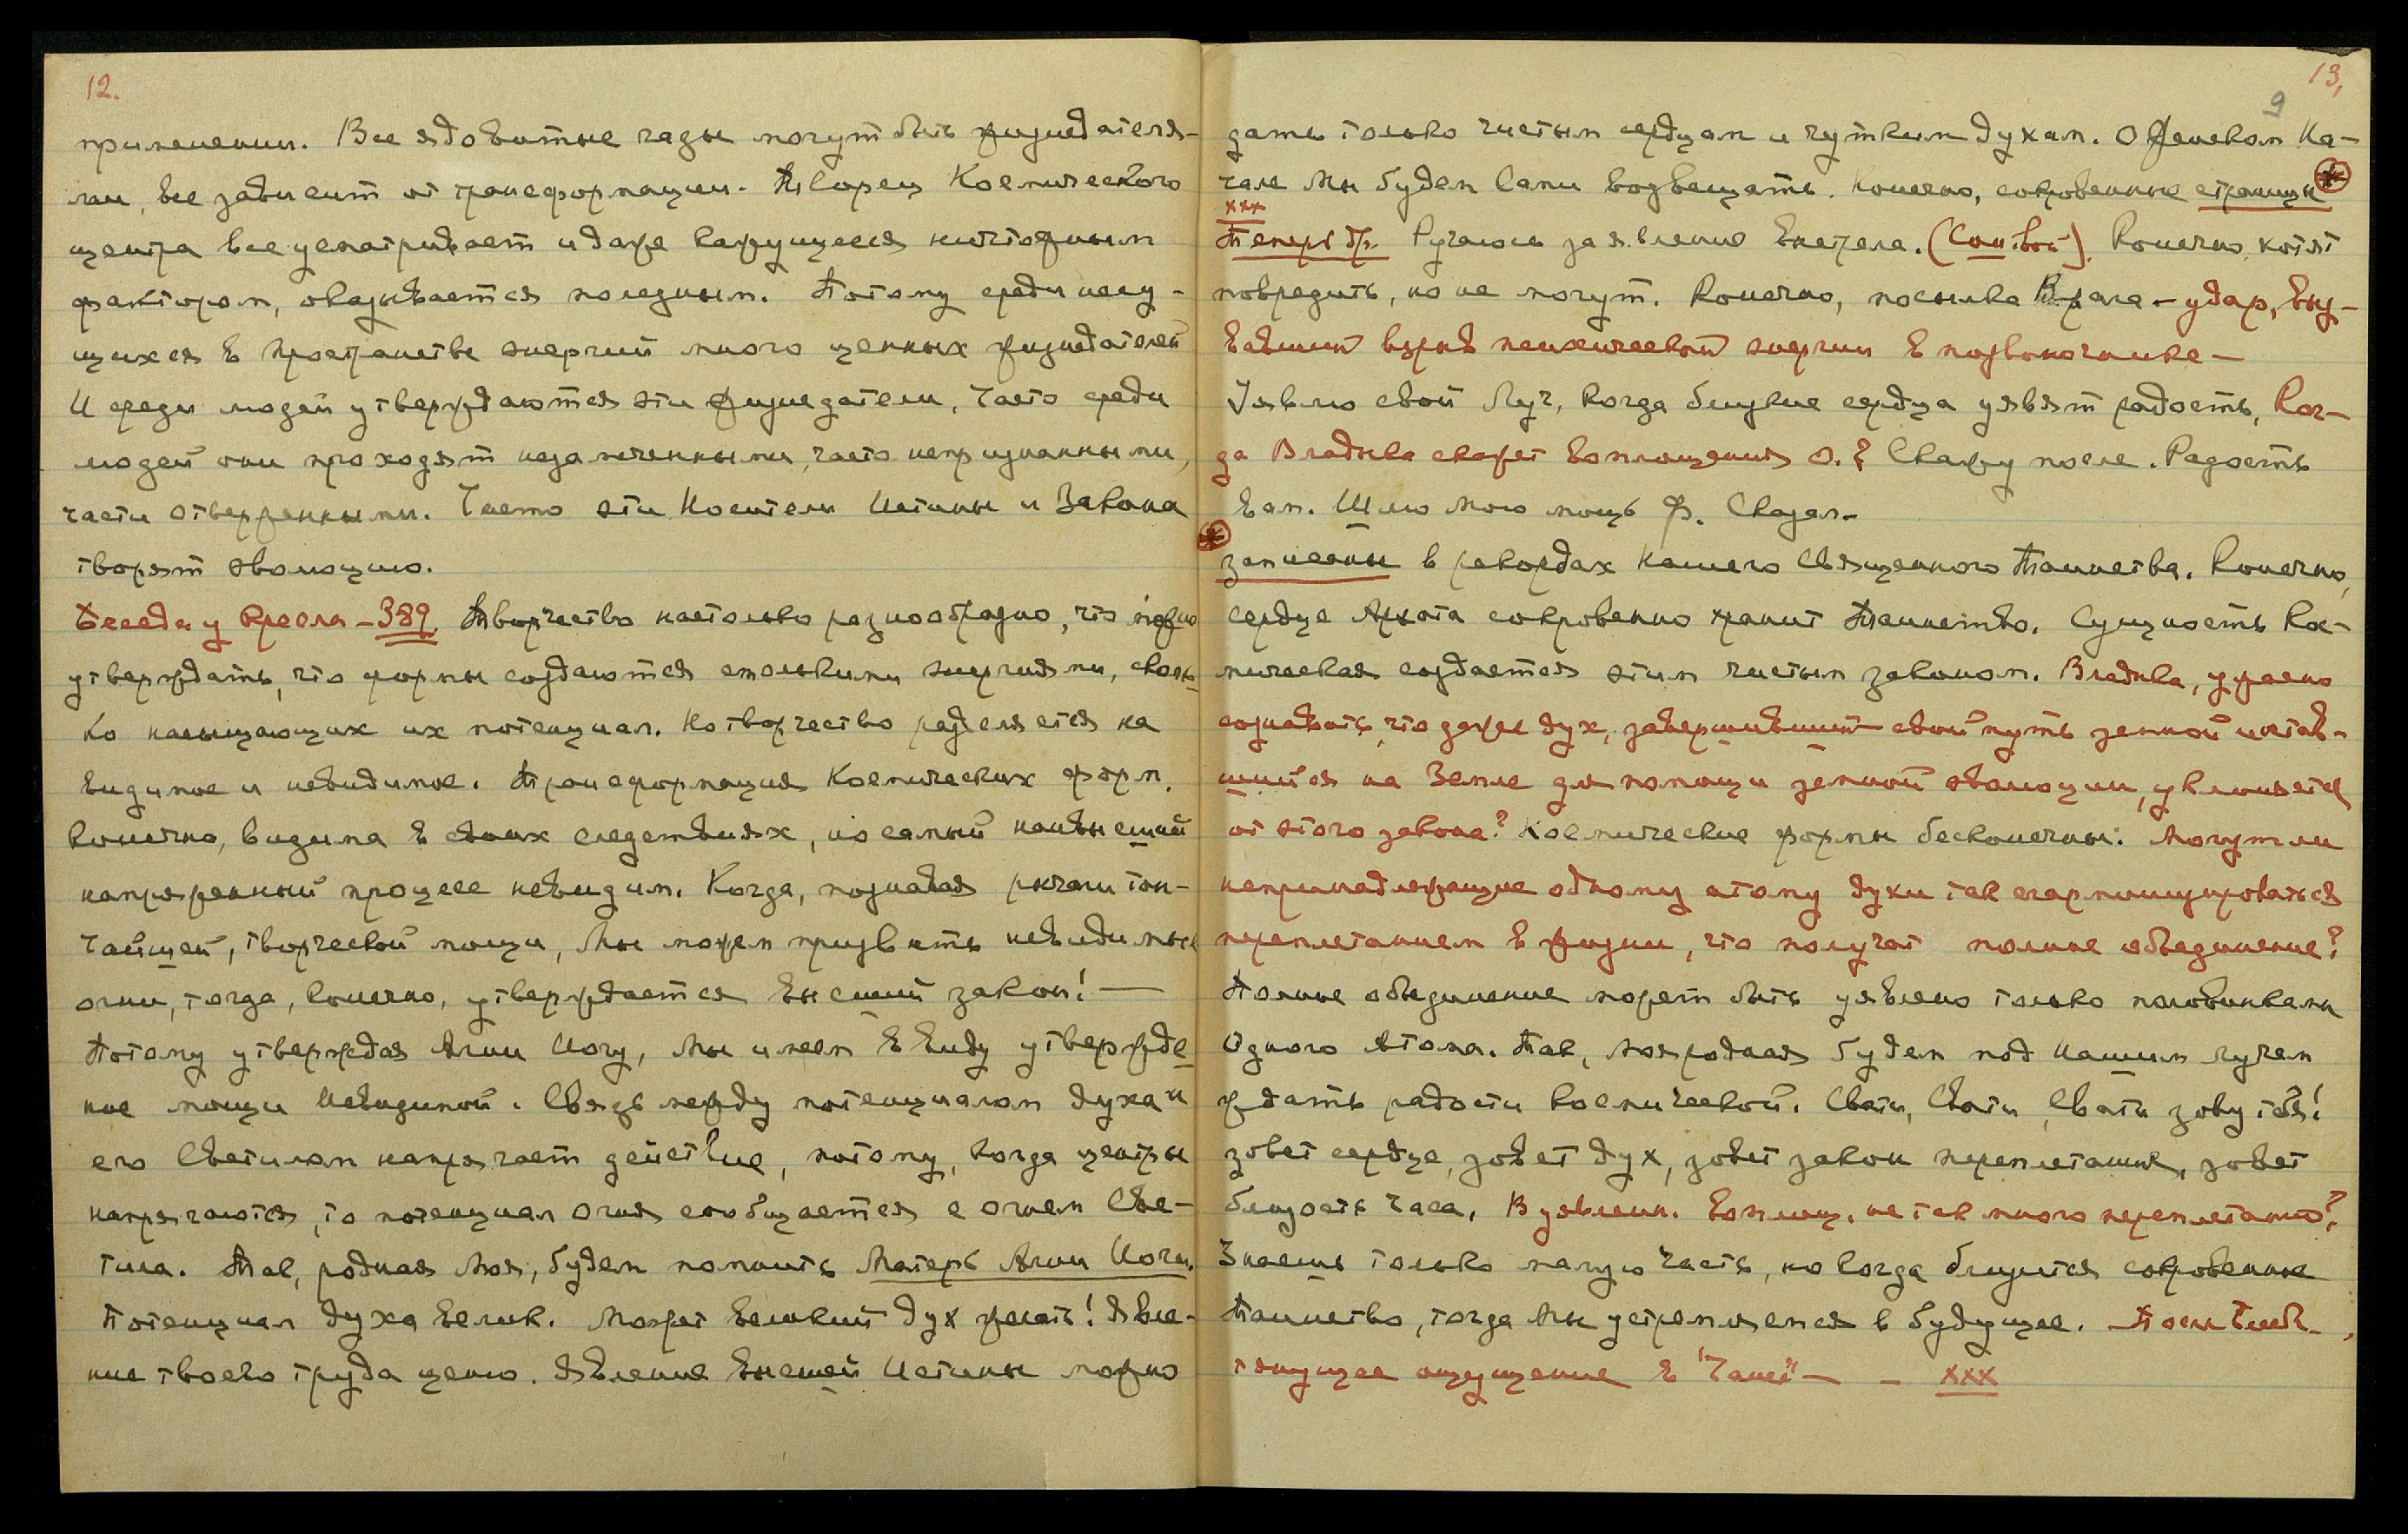 12.
применении. Все ядовитые газы могут быть жизнедателя-
ми, все зависит от трансформации. Творец Космического
центра все усматривает и даже кажущееся ничтожным
фактором, оказывается полезным. Потому среди несу-
щихся в пространстве энергий много ценных жизнедателей
И среди людей утверждаются эти жизнедатели, часто среди
людей они проходят незамеченными, часто непризнанными,
часто отверженными. Часто эти Носители Истины и Закона
творят эволюцию.
Беседа у Кресла – 389. Творчество настолько разнообразно, что можно
утверждать, что формы создаются столькими энергиями, сколь-
ко насыщающих их потенциал. Но творчество разделяется на
видимое и невидимое. Трансформация Космических форм,
конечно, видима в своих следствиях, но самый наивысший
напряженный процесс невидим. Когда, познавая рычаги тон-
чайшей, творческой мощи, Мы можем призвать невидимые
огни, тогда, конечно, утверждается высший закон! —
Потому утверждая Агни Йогу, Мы имеем в виду утвержде
ние мощи Невидимой. Связь между потенциалом духа и
его Светилом напрягает действие, потому, когда центры
напрягаются, то потенциал огня сообщается с огнем Све-
тила. Так, родная Моя, будем помнить Матерь Агни Йоги.
Потенциал духа велик. Может великий дух ждать! Явле-
ние твоего труда ценю. Явление высшей Истины можно
13.
9
дать только чистым сердцам и чутким духам. О Женском На-
чале Мы будем Сами возвещать. Конечно, сокровенные страницы
xxx
Теперь др. Ручаюсь за явление Экстрела. Конечно, хотят
повредить, но не могут. Конечно, посылка Врага – удар, выз-
вавший взрыв психической энергии в позвоночнике –
Уявлю свой Луч, когда близкие сердца уявят радость, Ког-
да Владыка скажет воплощения О.? Скажу после. Радость
вам. Шлю Мою мощь Ф. Сказал –
записаны в рекордах Нашего Священного Таинства. Конечно,
сердце Архата сокровенно хранит Таинство. Сущность Кос-
мическая создается этим чистым законом. Владыка, ужасно
сознавать, что даже дух, завершивший свой путь земной и остав-
шийся на Земле для помощи земной эволюции, уклоняется
от этого закона? Космические формы бесконечны: Могут ли
непринадлежащие одному атому духи так сгармонизироваться
переплетанием в жизни, что получат полное объединение?
Полное объединение может быть уявлено только половинками
Одного Атома. Так, Моя родная будем под Нашим лучем
ждать радости Космической. Свати, Свати, Свати зову тебя!
зовет сердце, зовет дух, зовет закон переплетания, зовет
близость часа. В уявлени. воплощ. не так много переплетаний?
Знаешь только малую часть, но когда близится сокровенное
Таинство, тогда Мы устремляемся в будущее.
тянущее ощущение в "Чаше" — – xxx